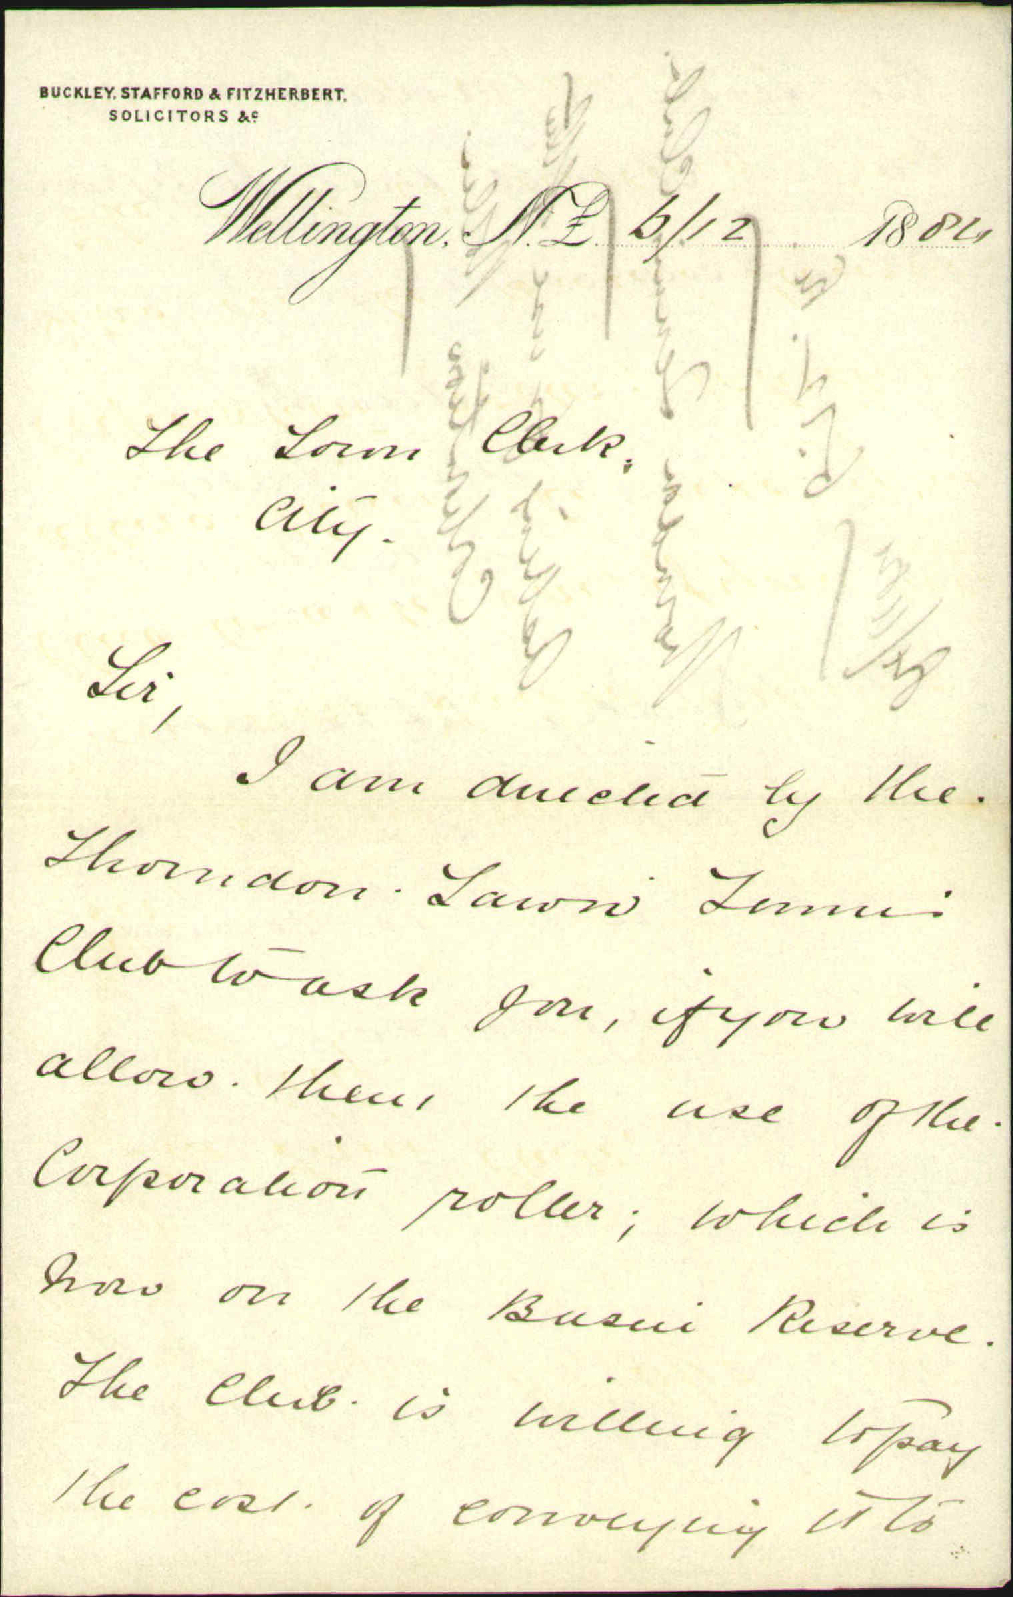 BUCKLEY, STAFFORD & FITZHERBERT.
SOLICITORS &c
Wellington, N.Z. 6/12 1884
The Town Clerk.
City.
Sir,
I am directed by the
Thorndon Lawn Tennis
Club to ask you, if you will
allow them the use of the
Corporation roller; which is
now on the Basin Reserve.
The Club is willing to pay
the cost of conveying it to